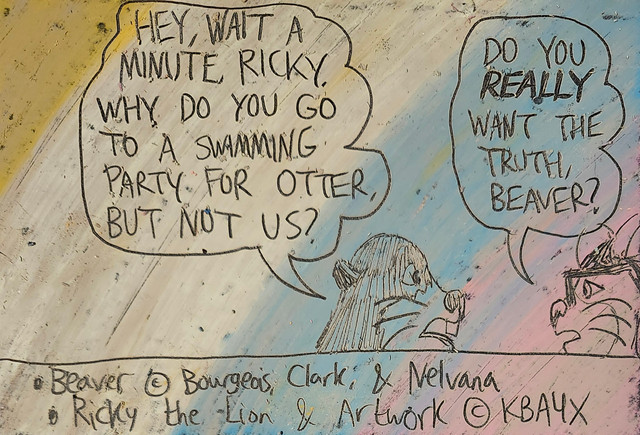 HEY, WAIT A
MINUTE, RICKY.
WHY DO YOU GO
TO A SWIMMING
PARTY FOR OTTER,
BUT NOT US?
DO YOU
REALLY
WANT THE
TRUTH,
BEAVER?
• Beaver © Bourgeois, Clark, & Nelvana
• Ricky the Lion & Artwork © KBA4X